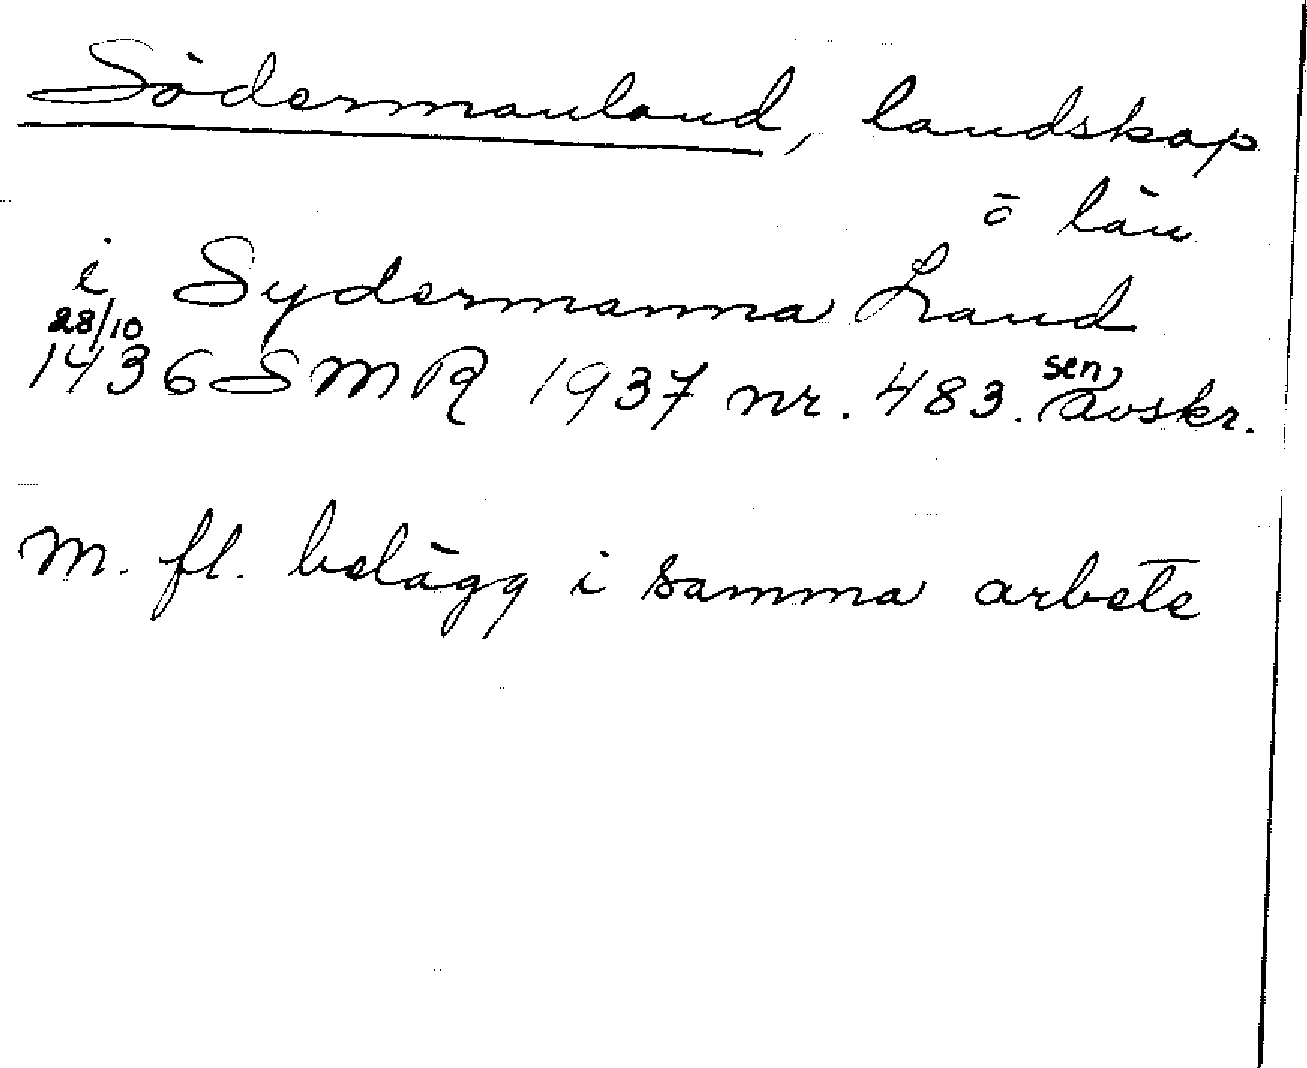 Södermanland, landskap
o län
i Sydermanna Land
28/10
1436 SMR 1937 nr. 483. sen, avskr.
M. fl. belägg i samma arbete